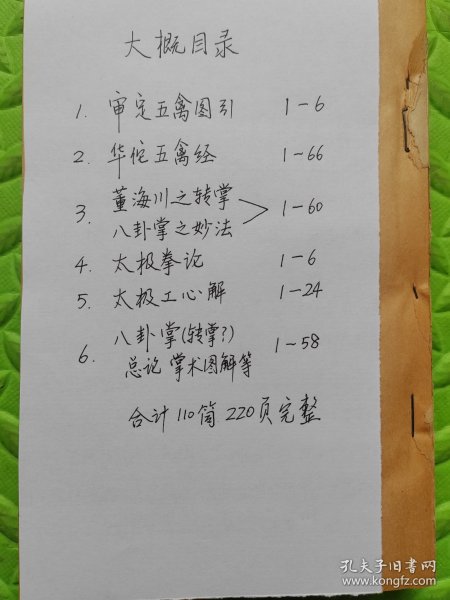 大概目录
1. 审定五禽图引 1-6
2. 华佗五禽经 1-66
3. 董海川之转掌
八卦掌之妙法 > 1-60
4. 太极拳论 1-6
5. 太极工心解 1-24
6. 八卦掌(转掌?)
总论 掌术图解等 1-58
合计110筒 220页完整
孔夫子旧书网
www.kongfz.com